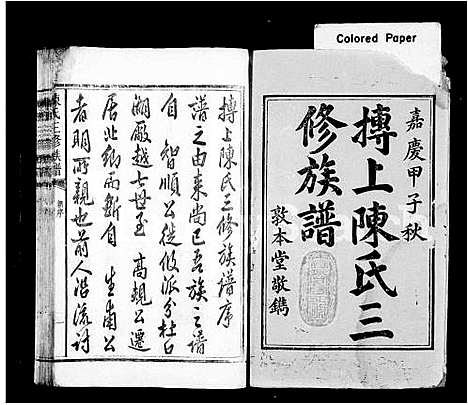 Colored Paper
嘉慶甲子秋
摶上陳氏三
修族譜
敦本堂敬鐫
摶上陳氏三修族譜序
譜之由來尚已吾族之譜
自智順公從攸派分杜
厥越七世至高䂓公遷
居此鄉而斷自生甫公
者明所親也前人沿流討
氏三修族譜